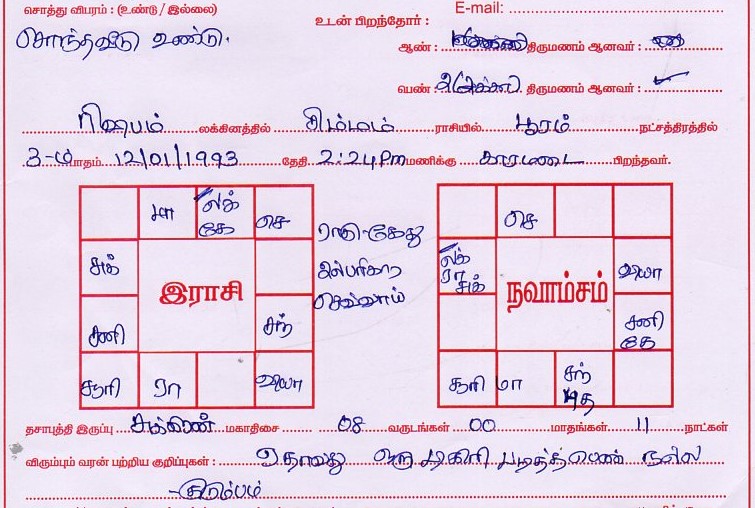 சொத்து விபரம் : (உண்டு / இல்லை) E-mail:
உடன் பிறந்தோர் :
சொந்தவீடு உண்டு.
ஆண் : திருமணம் ஆனவர் :
பெண் : திருமணம் ஆனவர் :
ரிஷபம் லக்கினத்தில் சிம்மம் ராசியில் பூரம் நட்சத்திரத்தில்
3-ம் பாதம் 12/01/1993 தேதி 2:24 Pm மணிக்கு காரமடை பிறந்தவர்.
லக் கே செ
சுக்
இராசி
சனி சந்
சூரி ரா வியா
ராகு-கேது
செவ்வாய்
செ
லக் ரா சுக் வியா
நவாம்சம்
சனி கே
சூரி மா சந் புத
தசாபுத்தி இருப்பு சுக்கிரன் மகாதிசை 08 வருடங்கள் 00 மாதங்கள் 11 நாட்கள்
விரும்பும் வரன் பற்றிய குறிப்புகள் : ஏதாவது ஒரு டிகிரி படித்த பெண் நல்ல
குடும்பம்